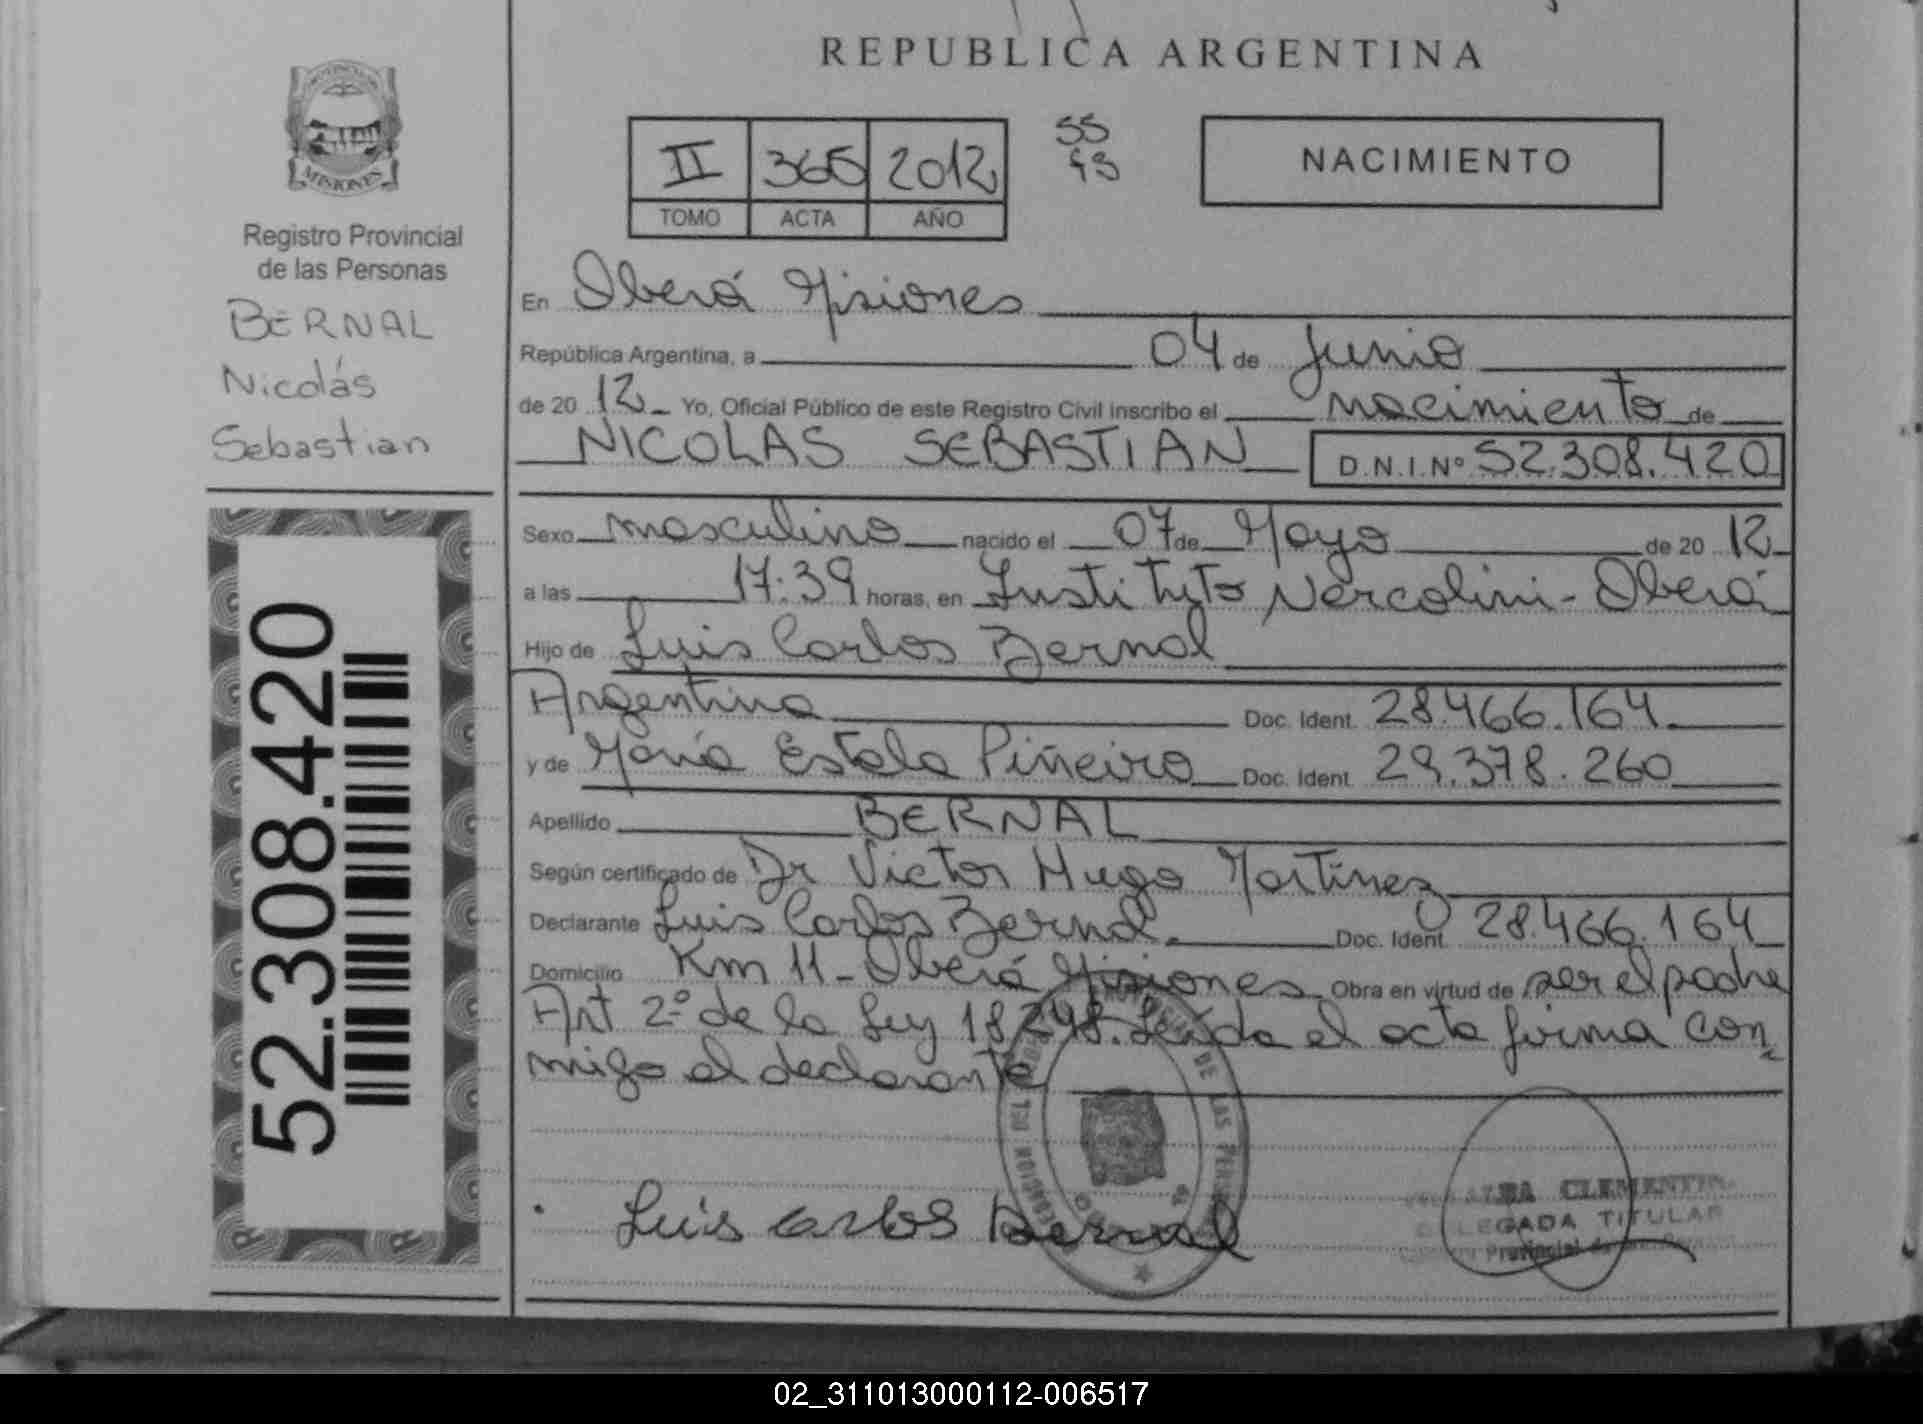 REPUBLICA ARGENTINA
PROVINCIA DE
MISIONES
Registro Provincial
de las Personas
BERNAL
Nicolás
Sebastian
52.308.420
II 365 2012
TOMO ACTA AÑO
55
93
NACIMIENTO
En Oberá Misiones
República Argentina, a 04 de Junio
de 20 12 Yo, Oficial Público de este Registro Civil inscribo el nacimiento de
NICOLAS SEBASTIAN D.N.I.Nº 52.308.420
Sexo masculino nacido el 07 de Mayo de 20 12
a las 17:39 horas, en Instituto Nercolini - Oberá
Hijo de Luis Carlos Bernal
Argentina Doc. Ident. 28.466.164
y de María Estela Piñeiro Doc. Ident. 29.378.260
Apellido BERNAL
Según certificado de Dr Victor Hugo Martínez
Declarante Luis Carlos Bernal. Doc. Ident. 28.466.164
Domicilio Km 11 - Oberá Misiones Obra en virtud de ser el padre
Art 2º de la Ley 18248. Leída el acta firma con
migo el declarante
Luis Carlos Bernal
CLEMENTIN
DELEGADA TITULAR
Provincial de
DE LAS
02_311013000112-006517